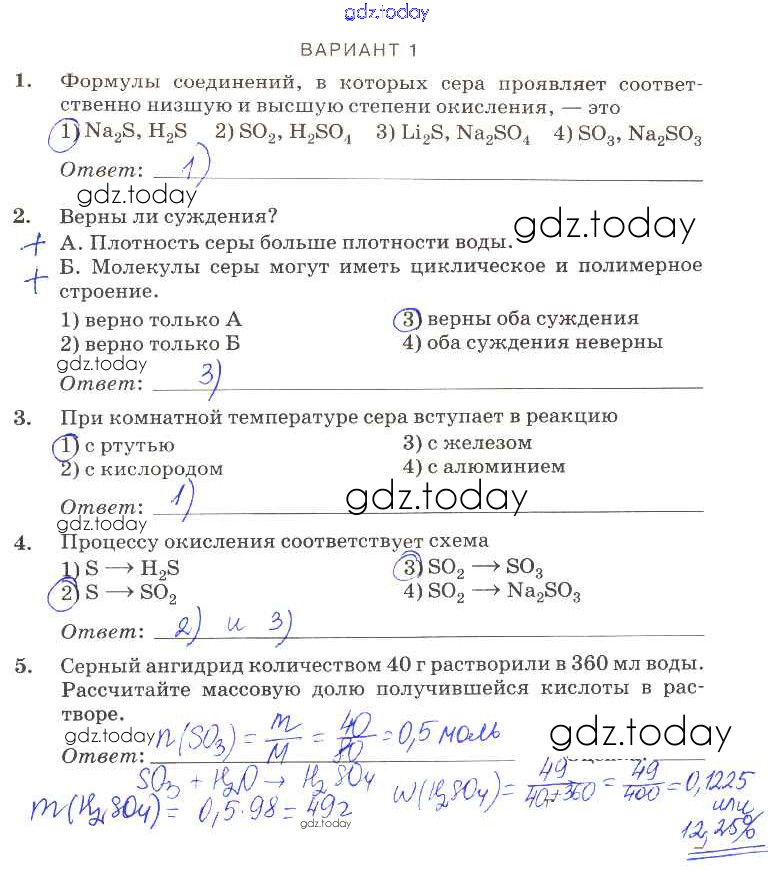 gdz.today
ВАРИАНТ 1
1. Формулы соединений, в которых сера проявляет соответ-
ственно низшую и высшую степени окисления, — это
1) Na₂S, H₂S 2) SO₂, H₂SO₄ 3) Li₂S, Na₂SO₄ 4) SO₃, Na₂SO₃
Ответ: 1)
gdz.today
2. Верны ли суждения?
gdz.today
+ А. Плотность серы больше плотности воды.
+ Б. Молекулы серы могут иметь циклическое и полимерное
строение.
1) верно только А 3) верны оба суждения
2) верно только Б 4) оба суждения неверны
gdz.today
Ответ: 3)
3. При комнатной температуре сера вступает в реакцию
1) с ртутью 3) с железом
2) с кислородом 4) с алюминием
Ответ: 1)
gdz.today
gdz.today
4. Процессу окисления соответствует схема
1) S → H₂S 3) SO₂ → SO₃
2) S → SO₂ 4) SO₂ → Na₂SO₃
Ответ: 2) и 3)
5. Серный ангидрид количеством 40 г растворили в 360 мл воды.
Рассчитайте массовую долю получившейся кислоты в рас-
творе.
gdz.today n(SO₃) = m/M = 40/80 = 0,5 моль
gdz.today
Ответ:
SO₃ + H₂O → H₂SO₄
m(H₂SO₄) = 0,5·98 = 49г
w(H₂SO₄) = 49/40+360 = 49/400 = 0,1225
или
12,25%
gdz.today